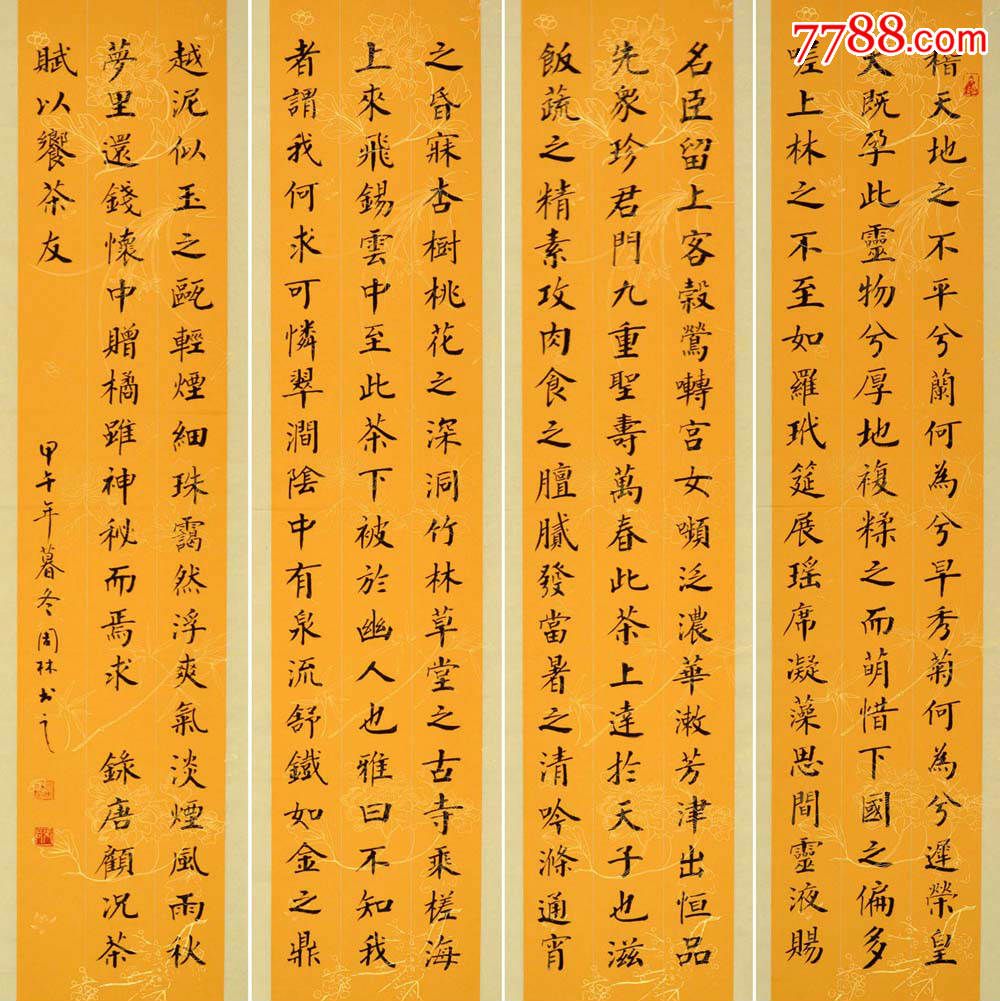 7788.com
稽天地之不平兮蘭何為兮早秀菊何為兮遲榮皇
天既孕此靈物兮厚地複糅之而萌惜下國之偏多
嗟上林之不至如羅玳筵展瑤席凝藻思間靈液賜
名臣留上客穀鶯囀宮女嚬泛濃華漱芳津出恒品
先衆珍君門九重聖壽萬春此茶上達於天子也滋
飯蔬之精素攻肉食之膻膩發當暑之清吟滌通宵
之昏寐杏樹桃花之深洞竹林草堂之古寺乘槎海
上來飛錫雲中至此茶下被於幽人也雅曰不知我
者謂我何求可憐翠澗陰中有泉流舒鐵如金之鼎
越泥似玉之甌輕煙細珠靄然浮爽氣淡煙風雨秋
夢里還錢懷中贈橘雖神秘而焉求 錄唐顧況茶
賦以饗茶友
甲午年暮冬周林书之